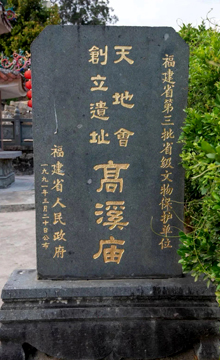 福建省第三批省級文物保护单位
天地會
創立遺址
高溪庙
福建省人民政府
一九九一年三月二十日公布